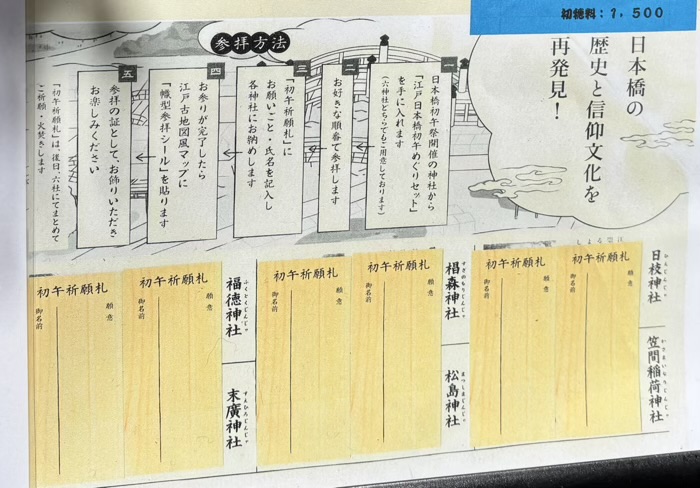 初穂料：1，500
日本橋の
歴史と信仰文化を
再発見！
参拝方法
一
日本橋初午祭開催の神社から
「江戸日本橋初午めぐりセット」
を手に入れます
（六神社どちらでもご用意しております）
二
お好きな順番で参拝します
三
「初午祈願札」に
お願いごと・氏名を記入し
各神社にお納めします
四
お参りが完了したら
江戸古地図風マップに
「幟型参拝シール」を貼ります
五
参拝の証として、お飾りいただき
お楽しみください
「初午祈願札」は、後日、六社にてまとめて
ご祈願・火焚きします
日枝神社
ひえじんじゃ
笠間稲荷神社
かさまいなりじんじゃ
初午祈願札
願意
御名前
初午祈願札
願意
御名前
椙森神社
すぎのもりじんじゃ
松島神社
まつしまじんじゃ
初午祈願札
願意
御名前
初午祈願札
願意
御名前
福徳神社
ふくとくじんじゃ
末廣神社
すえひろじんじゃ
初午祈願札
願意
御名前
初午祈願札
願意
御名前